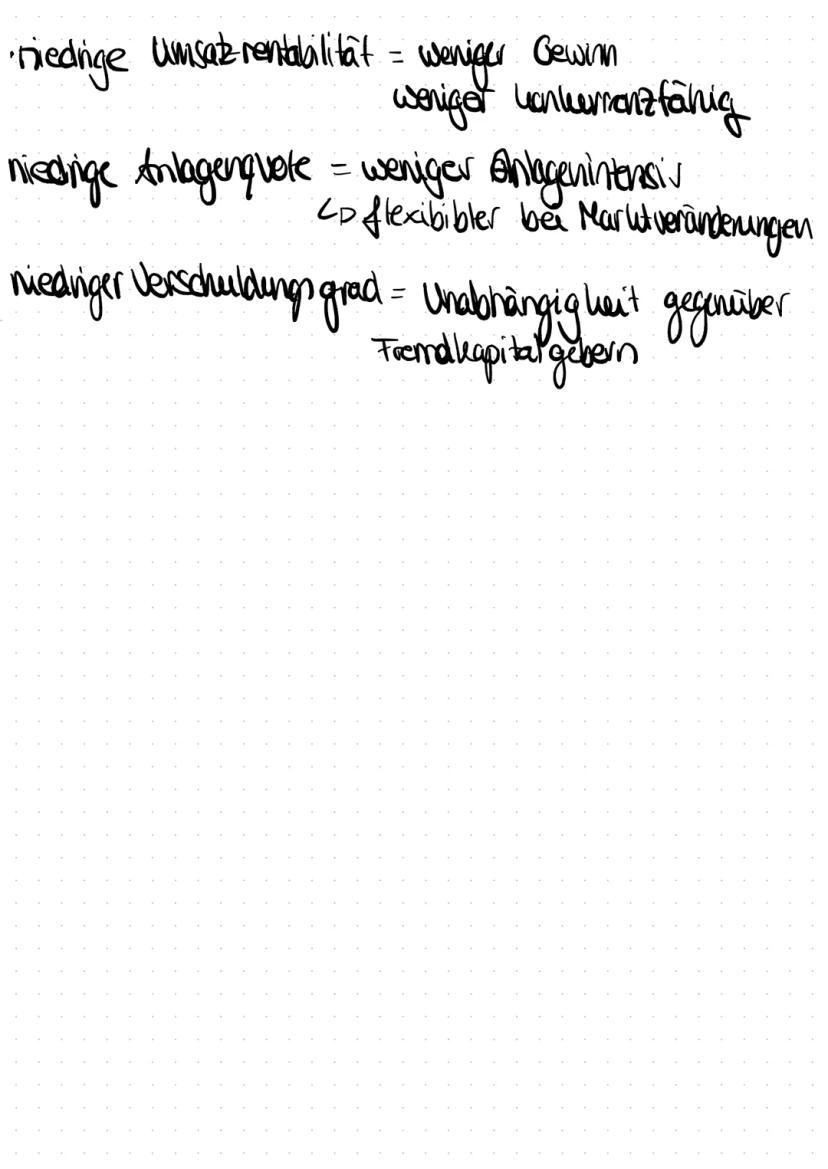 ·niedrige Umsatzrentabilität = weniger Gewinn
weniger konkurranzfähig
niedrige Anlagenquote = weniger Anlagenintensiv
↳ flexibibler bei Marktveränderungen
niedriger Verschuldungsgrad = Unabhängigkeit gegenüber
Fremdkapitalgebern